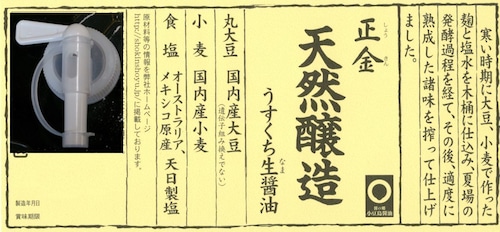 寒い時期に大豆、小麦で作った
麹と塩水を木桶に仕込み、夏場の
発酵過程を経て、その後、適度に
熟成した諸味を搾って仕上げ
ました。
正金
しょう きん
天然醸造
うすくち生醤油
なま
小豆島醤油
丸大豆 国内産大豆
(遺伝子組み換えでない)
小麦 国内産小麦
食塩 オーストラリア、
メキシコ原産 天日製塩
原材料等の情報を弊社ホームページ
http://shokinshoyu.jp/に掲載しております。
製造年月日
賞味期限